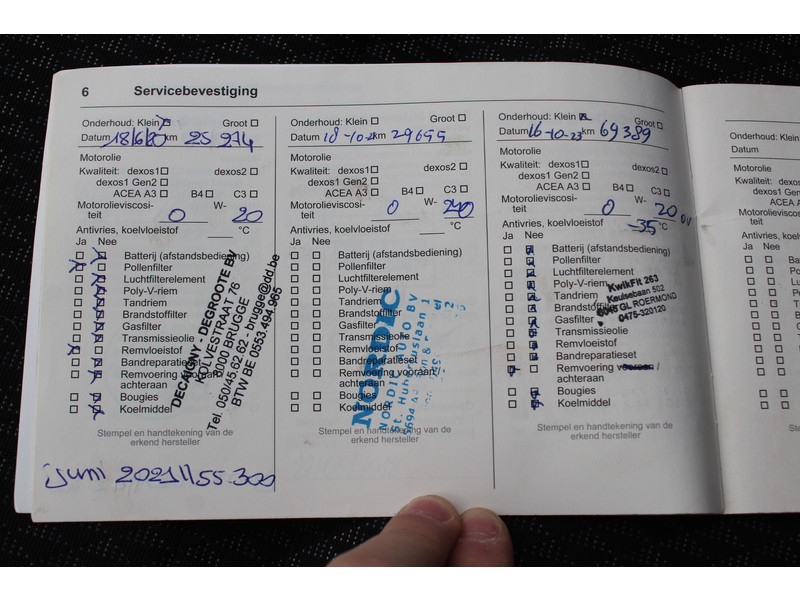 6 Servicebevestiging
Onderhoud: Klein Groot
Datum 18/6/20 km 25 274
Motorolie
Kwaliteit: dexos1 dexos2
dexos1 Gen2
ACEA A3 B4 C3
Motorolieviscosi-
teit 0 W- 20
Antivries, koelvloeistof °C
Ja Nee
Batterij (afstandsbediening)
Pollenfilter
Luchtfilterelement
Poly-V-riem
Tandriem
Brandstoffilter
Gasfilter
Transmissieolie
Remvloeistof
Bandreparatieset
Remvoering vooraan/
achteraan
Bougies
Koelmiddel
Stempel en handtekening van de
erkend hersteller
DECAIGNY - DEGROOTE BV
KOLVESTRAAT 76
8000 BRUGGE
Tel. 050/45.62.62 - brugge@dd.be
BTW BE 0553.494.965
juni 2021 // 55.300
Onderhoud: Klein Groot
Datum 18-10-21 km 29655
Motorolie
Kwaliteit: dexos1 dexos2
dexos1 Gen2
ACEA A3 B4 C3
Motorolieviscosi-
teit 0 W- 20
Antivries, koelvloeistof °C
Ja Nee
Batterij (afstandsbediening)
Pollenfilter
Luchtfilterelement
Poly-V-riem
Tandriem
Brandstoffilter
Gasfilter
Transmissieolie
Remvloeistof
Bandreparatieset
Remvoering vooraan /
achteraan
Bougies
Koelmiddel
Stempel en handtekening van de
erkend hersteller
NORDIC
NORDIC AUTO BV
St. Hubertuslaan 1
Onderhoud: Klein Groot
Datum 16-10-23 km 69389
Motorolie
Kwaliteit: dexos1 dexos2
dexos1 Gen2
ACEA A3 B4 C3
Motorolieviscosi-
teit 0 W- 20
Antivries, koelvloeistof -35 °C
Ja Nee
Batterij (afstandsbediening)
Pollenfilter
Luchtfilterelement
Poly-V-riem
Tandriem
Brandstoffilter
Gasfilter
Transmissieolie
Remvloeistof
Bandreparatieset
Remvoering vooraan /
achteraan
Bougies
Koelmiddel
Stempel en handtekening van de
erkend hersteller
KwikFit 263
Keulsebaan 502
6045 GL ROERMOND
0475-320120
Onderhoud: Klein
Datum
Motorolie
Kwaliteit:
dexos1
ACEA
Motorolieviscosi-
teit
Antivries, koelvloeistof
Ja Nee